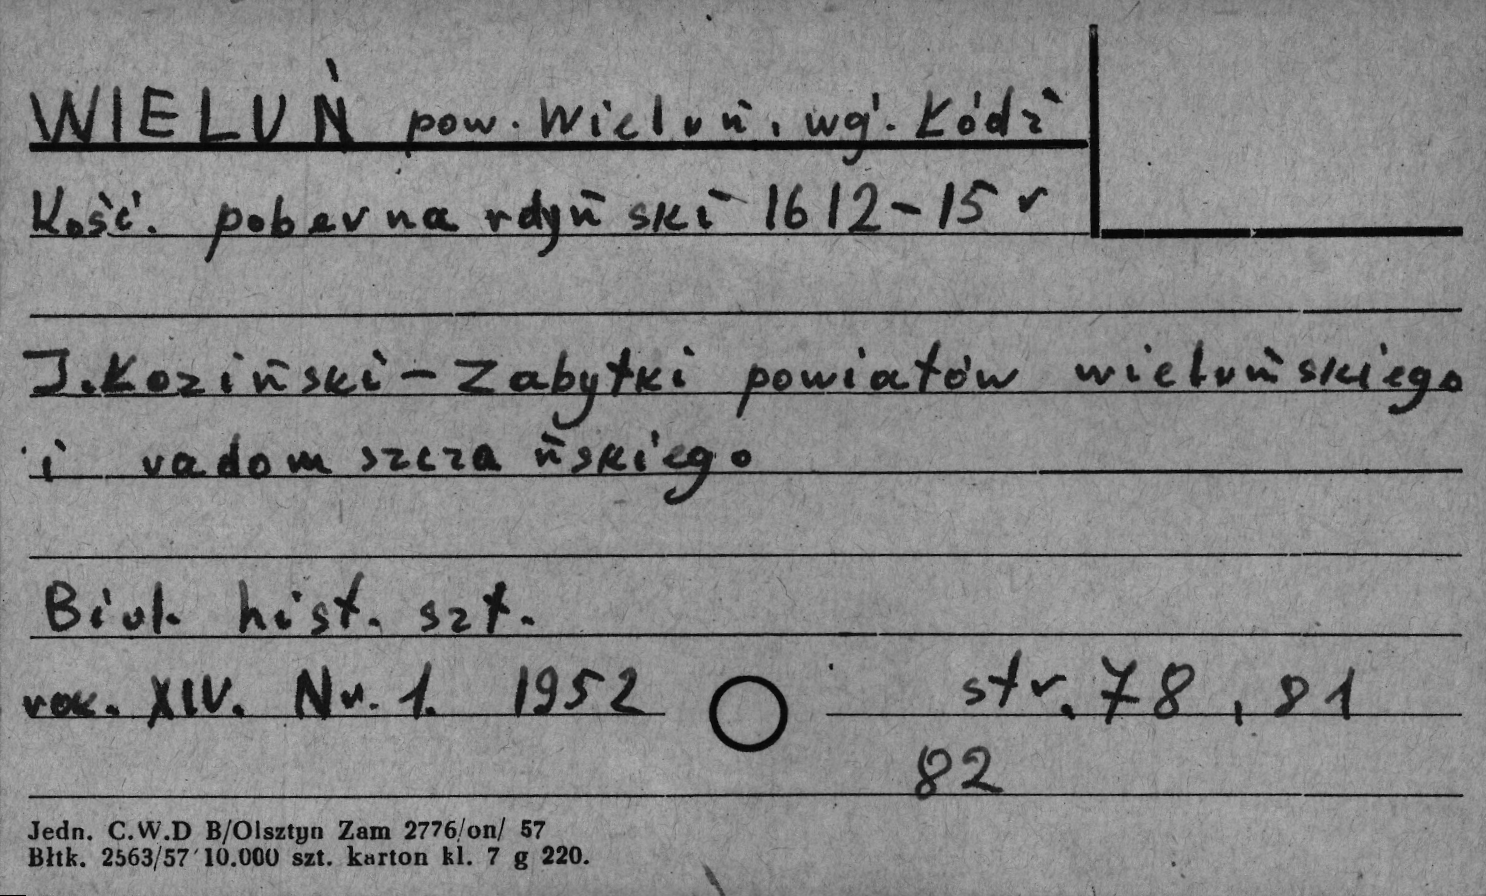 WIELUŃ pow. Wieluń, wg. Łódź
Kość. pobernardyński 1612-15 r
J. Koziński - Zabytki powiatów wieluńskiego
i radomszczańskiego
Biul. hist. szt.
rok. XIV. Nr. 1. 1952 str. 78, 81
82
Jedn. C.W.D B/Olsztyn Zam 2776/on/ 57
Błtk. 2563/57 10.000 szt. karton kl. 7 g 220.